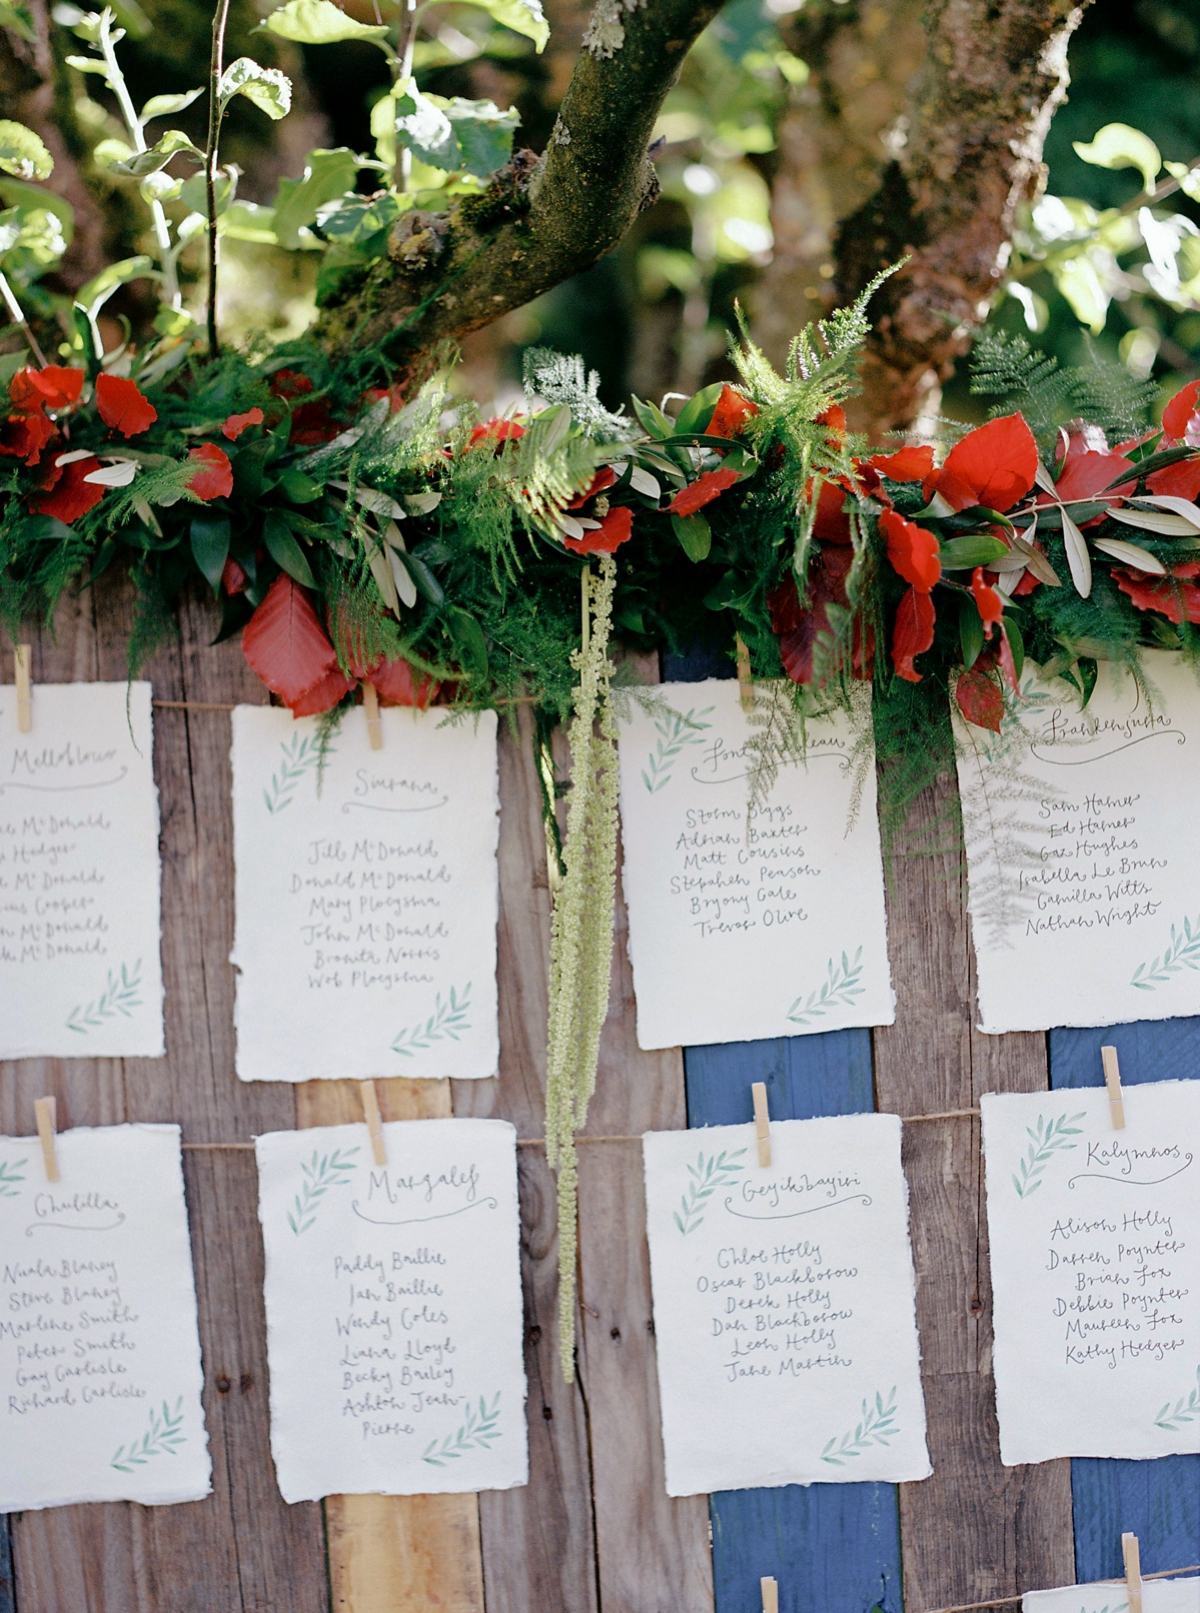 Melloblocco
McDonald
Hedger
McDonald
Cooper
McDonald
McDonald
Siurana
Jill McDonald
Donald McDonald
Mary Ploegsma
John McDonald
Bronita Norris
Wob Ploegsma
Storm Biggs
Adrian Baxter
Matt Cousins
Stephen Peason
Bryony Gale
Trevor Olive
Frankenjura
Sam Hamer
Ed Hamer
Gaz Hughes
Isabella Le Brun
Camilla Witts
Nathan Wright
Chulilla
Nuala Blaney
Steve Blaney
Marlene Smith
Peter Smith
Gay Carlisle
Richard Carlisle
Margalef
Paddy Baillie
Jan Baillie
Wendy Coles
Liana Lloyd
Becky Bailey
Ashton Jean-
Pierre
Geyikbayiri
Chloe Holly
Oscar Blackborow
Derek Holly
Dan Blackborow
Leon Holly
Jane Martin
Kalymnos
Alison Holly
Darren Poynter
Brian Fox
Debbie Poynter
Maureen Fox
Kathy Hedger